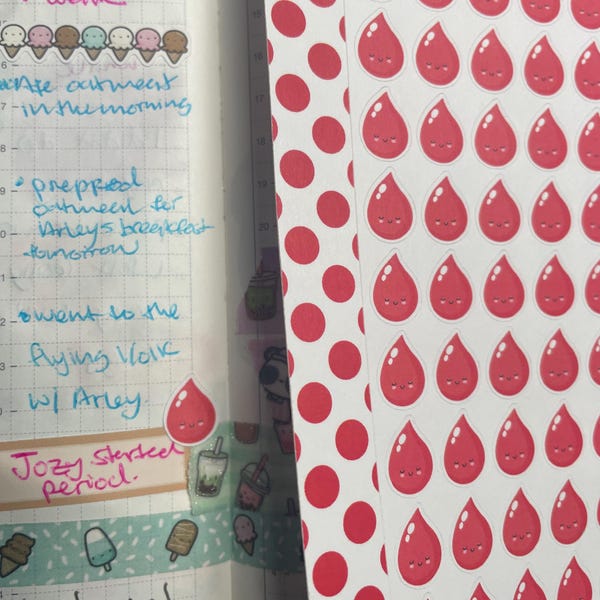 Ate oatmeal
in the morning
• prepped
oatmeal for
Arley's breakfast
tomorrow
• went to the
flying
w/ Arley.
Jozy started
period.
6
7
8
16
17
18
19
20
21